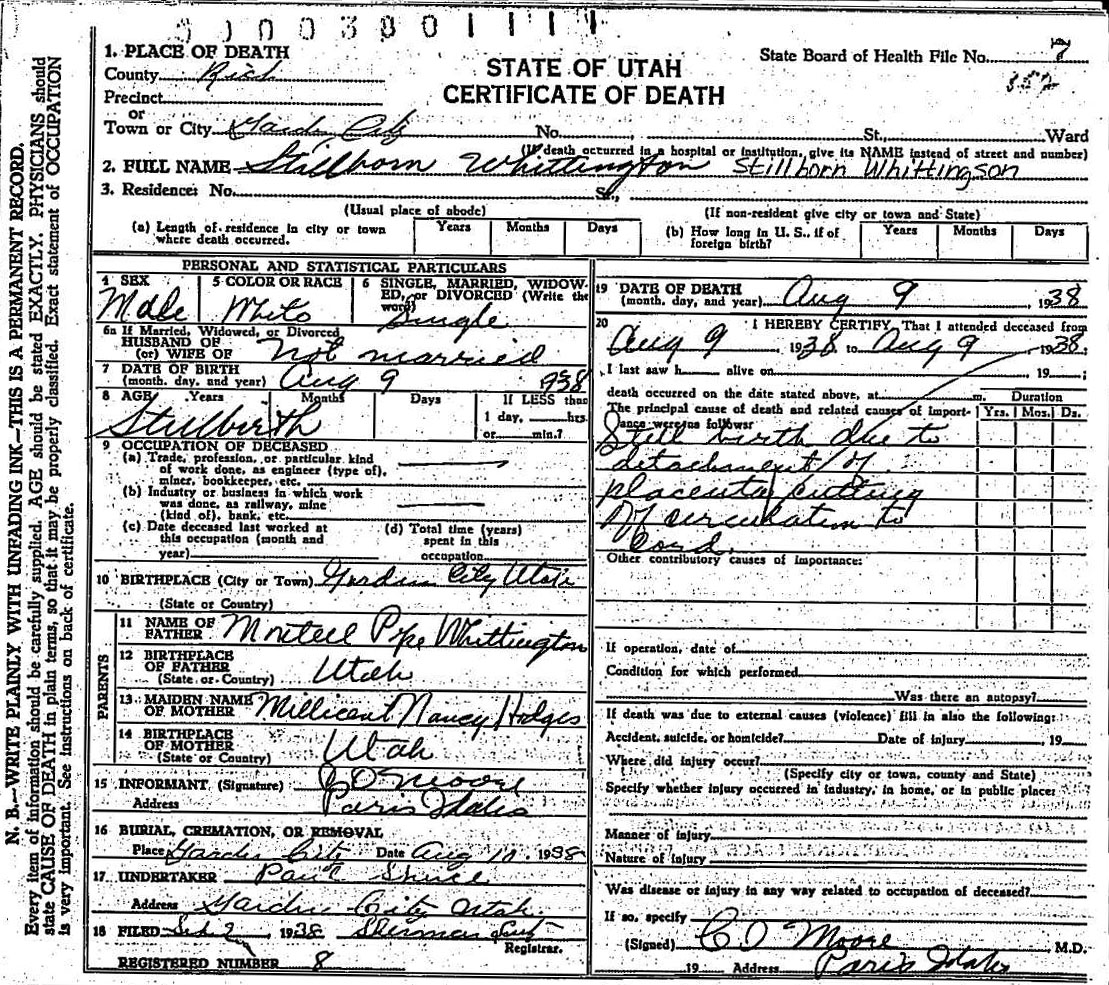 3 1 0 0 3 8 0 1 1 1 1
1. PLACE OF DEATH
County Rich
Precinct
or
Town or City Garden City No. St., Ward
STATE OF UTAH
CERTIFICATE OF DEATH
State Board of Health File No. 7
352
(If death occurred in a hospital or institution, give its NAME instead of street and number)
2. FULL NAME Stillborn Whittington Stillborn Whittingson
3. Residence: No. St.,
(Usual place of abode) (If non-resident give city or town and State)
(a) Length of residence in city or town where death occurred. Years Months Days
(b) How long in U. S., if of foreign birth? Years Months Days
PERSONAL AND STATISTICAL PARTICULARS
4 SEX Male
5 COLOR OR RACE White
6 SINGLE, MARRIED, WIDOWED, or DIVORCED (Write the word) Single
6a If Married, Widowed, or Divorced
HUSBAND OF
(or) WIFE OF Not married
7 DATE OF BIRTH
(month, day, and year) Aug 9 1938
8 AGE Years Months Days If LESS than
1 day, hrs.
or min.?
Stillbirth
9 OCCUPATION OF DECEASED
(a) Trade, profession, or particular kind
of work done, as engineer (type of),
miner, bookkeeper, etc.
(b) Industry or business in which work
was done, as railway, mine
(kind of), bank, etc.
(c) Date deceased last worked at
this occupation (month and
year)
(d) Total time (years)
spent in this
occupation
10 BIRTHPLACE (City or Town) Garden City Utah
(State or Country)
PARENTS
11 NAME OF
FATHER Monteel Pope Whittington
12 BIRTHPLACE
OF FATHER
(State or Country) Utah
13 MAIDEN NAME
OF MOTHER Millicent Nancy Hodges
14 BIRTHPLACE
OF MOTHER
(State or Country) Utah
15 INFORMANT (Signature) C O Moore
Address Paris Idaho
16 BURIAL, CREMATION, OR REMOVAL
Place Garden City Date Aug 10, 1938
17 UNDERTAKER Paul
Address Garden City Utah.
18 FILED Sep 2 1938 Sherman
Registrar.
REGISTERED NUMBER 8
19 DATE OF DEATH
(month, day, and year) Aug 9 1938
20 I HEREBY CERTIFY, That I attended deceased from
Aug 9 1938 to Aug 9 1938;
I last saw h alive on 19 ;
death occurred on the date stated above, at m. Duration
The principal cause of death and related causes of importance were as follows: Yrs. Mos. Ds.
Still birth due to
detachment of
placenta cutting
off circulation to
Cord.
Other contributory causes of importance:
If operation, date of
Condition for which performed
Was there an autopsy?
If death was due to external causes (violence) fill in also the following:
Accident, suicide, or homicide? Date of injury , 19
Where did injury occur?
(Specify city or town, county and State)
Specify whether injury occurred in industry, in home, or in public place:
Manner of injury
Nature of injury
Was disease or injury in any way related to occupation of deceased?
If so, specify
(Signed) C O Moore M.D.
19 Address Paris Idaho
N. B.—WRITE PLAINLY WITH UNFADING INK—THIS IS A PERMANENT RECORD.
Every item of information should be carefully supplied. AGE should be stated EXACTLY. PHYSICIANS should
state CAUSE OF DEATH in plain terms, so that it may be properly classified. Exact statement of OCCUPATION
is very important. See instructions on back of certificate.